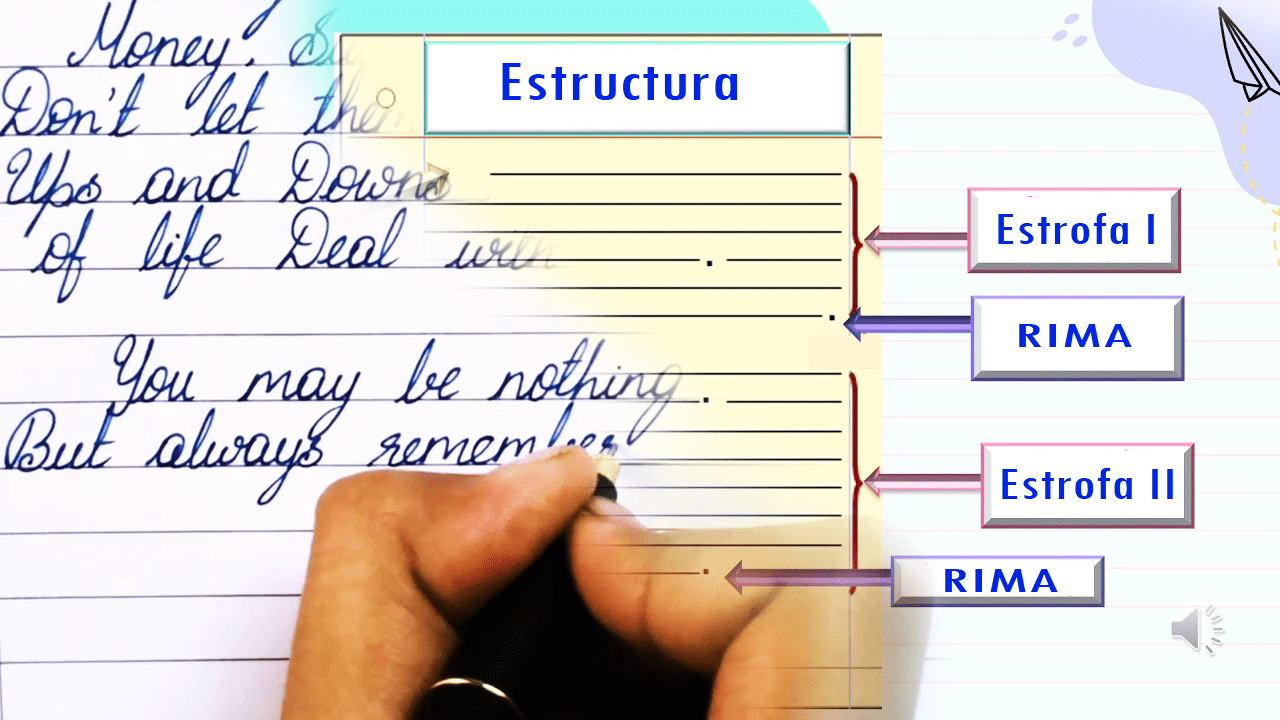 Money.
Don't let them
Ups and Downs
of life Deal with
You may be nothing
But always remember
Estructura
Estrofa I
RIMA
Estrofa II
RIMA